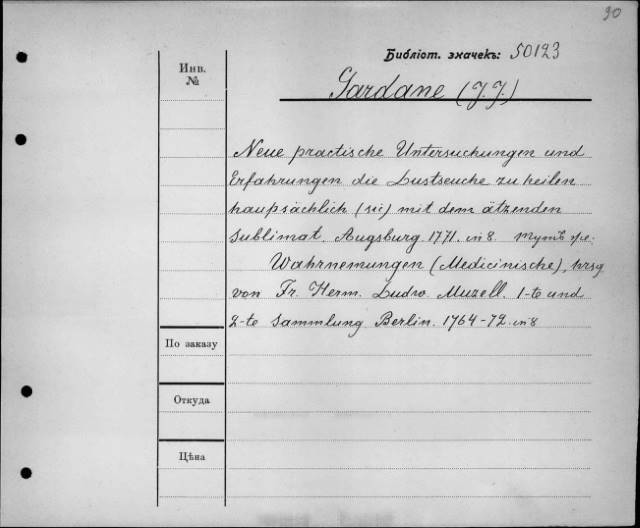 90
Библіот. значекъ: 50123
Инв.
№
Gardane (J.J.)
Neue practische Untersuchungen und
Erfahrungen die Lustseuche zu heilen
haupsächlich (sic) mit dem ätzenden
Sublimat. Augsburg 1771. in 8. тутъ же:
Wahrnemungen (Medicinische), hrsg
von Fr. Herm. Ludw. Muzell. 1-te und
2-te Sammlung Berlin. 1764-72. in 8
По заказу
Откуда
Цѣна